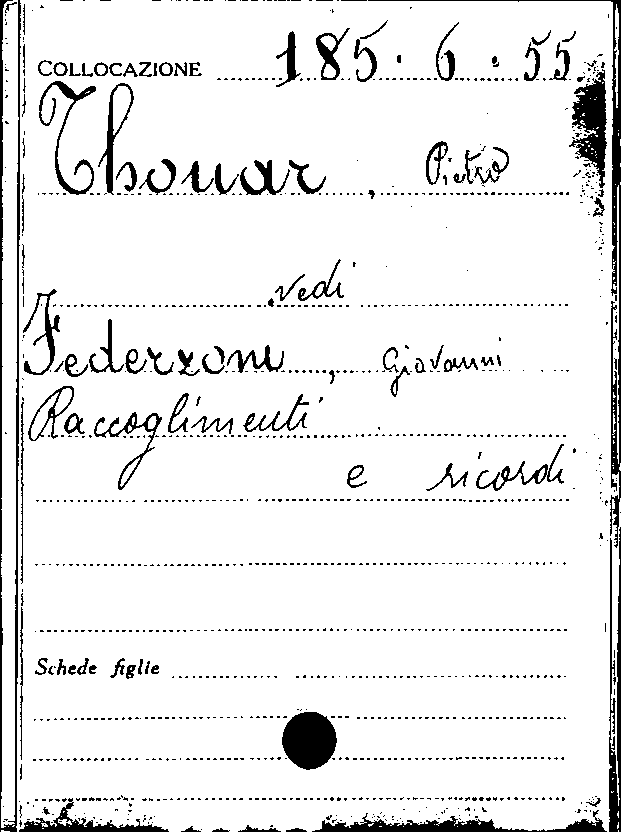 COLLOCAZIONE 185 · 6 · 55
Thouar, Pietro
vedi
Federzoni, Giovanni
Raccoglimenti
e ricordi
Schede figlie